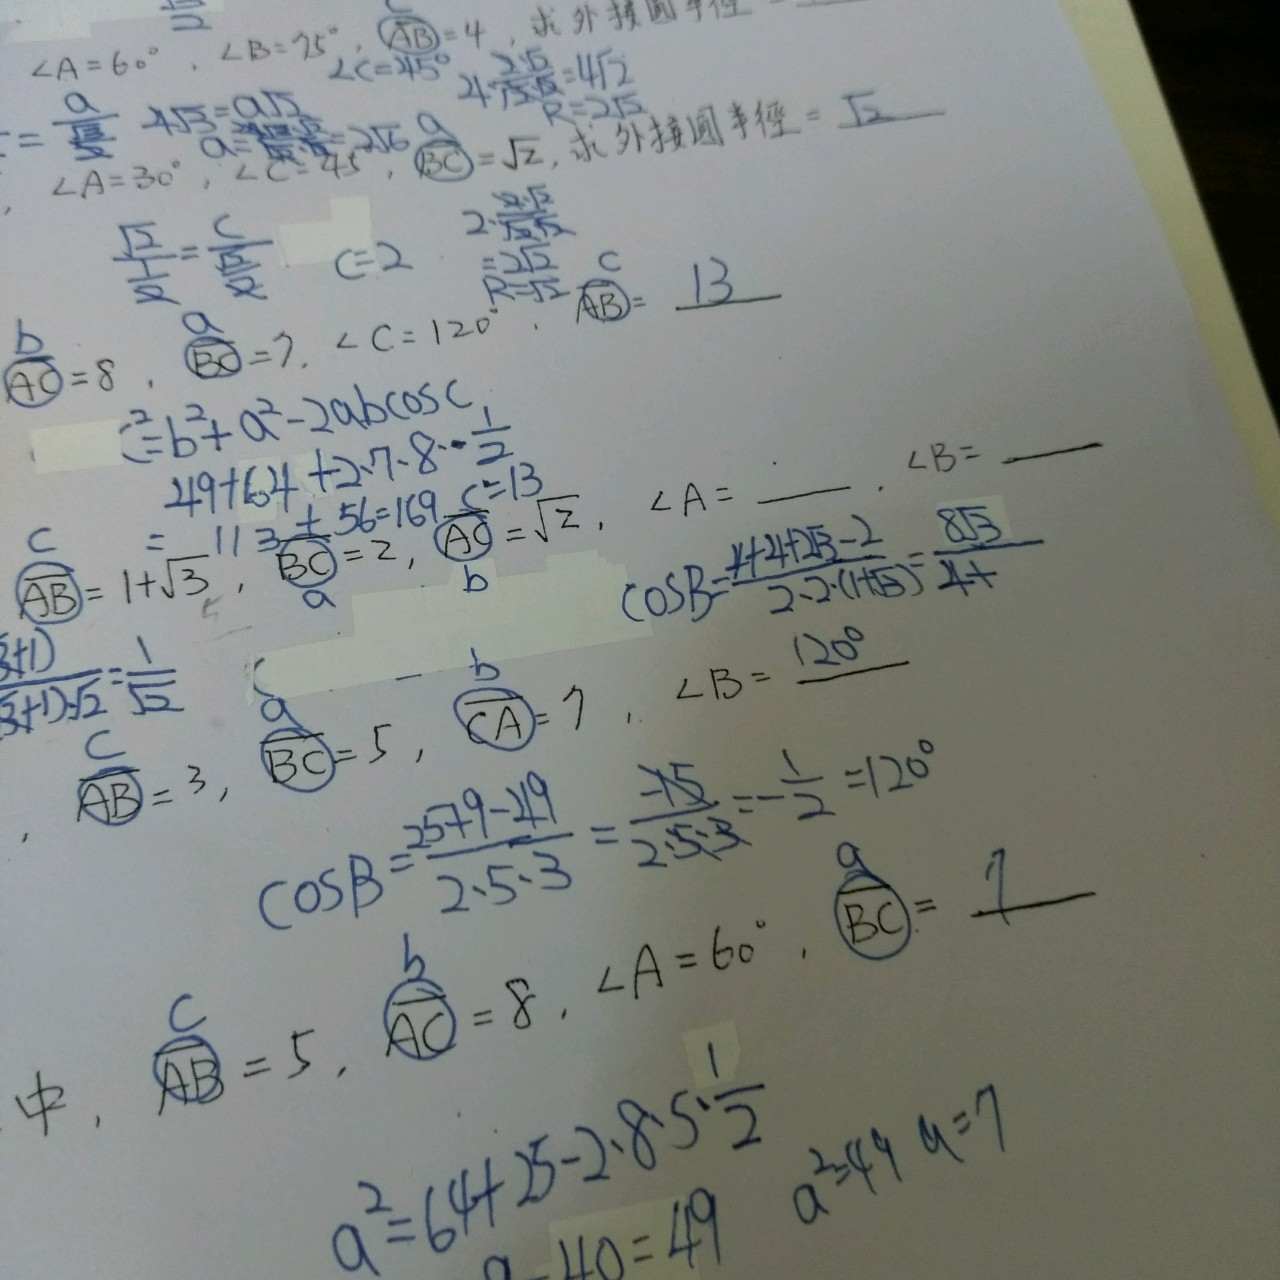 ∠A=60°, ∠B=75°, AB=4, 求外接圓半徑=
∠C=45°
4·2·√2/√2·√2=4√2
R=2√2
=a/(√3/2)
4√3=a√2
=2√6
a
∠A=30°, ∠C=45°, BC=√2, 求外接圓半徑=√2
√2/(1/2)=c/(√2/2)
c=2
2·2·√2/√2·√2
=2√2
R=√2
b a c
AC=8, BC=7, ∠C=120°, AB=13
c²=b²+a²-2abcosC
49+64+2·7·8·1/2
=113+56=169 c=13
c
AB=1+√3, BC=2, AC=√2, ∠A=____, ∠B=____
a b
cosB=(4+4+2√3-2)/(2·2·(1+√3))=8√3/4+
=1/√2
c a b
AB=3, BC=5, CA=7, ∠B=120°
cosB=(25+9-49)/(2·5·3)=-15/(2·5·3)=-1/2=120°
c b a
中, AB=5, AC=8, ∠A=60°, BC=7
a²=64+25-2·8·5·1/2
-40=49
a²=49 a=7